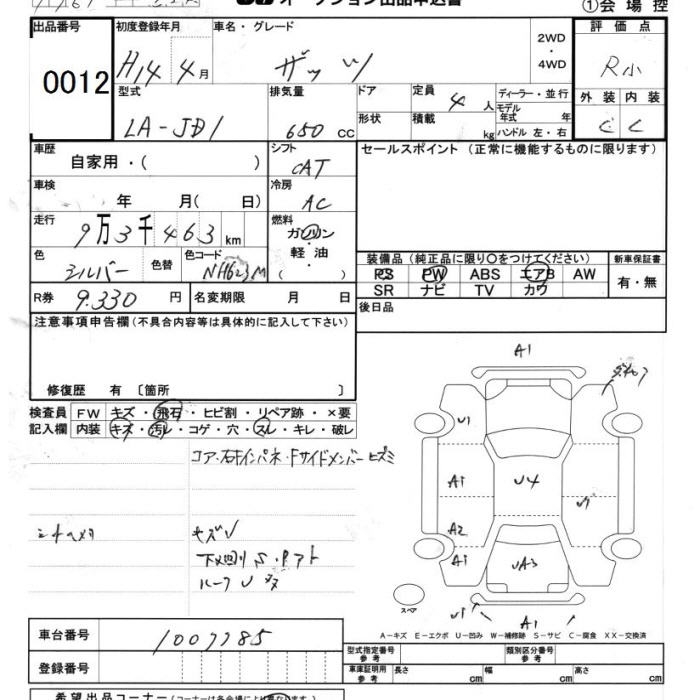 オークション出品申込書
①会場控
出品番号 初度登録年月 車名・グレード 評価点
0012 H14年4月 ザッツ 2WD・4WD R小
型式 排気量 ドア 定員 ディーラー・並行 外装 内装
LA-JD1 650cc 4人 モデル年式 年 C C
形状 積載 kg ハンドル 左・右
車歴 自家用・( ) シフト CAT セールスポイント(正常に機能するものに限ります)
車検 年 月( 日) 冷房 AC
走行 9万3千463km 燃料 ガソリン・軽油・( )
色 シルバー 色替 色コード NH623M
装備品(純正品に限り○をつけてください) 新車保証書
PS PW ABS エアB AW 有・無
SR ナビ TV カワ
R券 9.330円 名変期限 月 日 後日品
注意事項申告欄(不具合内容等は具体的に記入して下さい)
修復歴 有〔箇所 〕
検査員記入欄 FW キズ・飛石・ヒビ割・リペア跡・×要
内装 キズ・汚レ・コゲ・穴・スレ・キレ・破レ
コア・右Fインパネ・Fサイドメンバーヒズミ
キズU
ルーフU
A1
U1
A1 U4
A2
A1 UA3
スペア
A1
A-キズ E-エクボ U-凹み W-補修跡 S-サビ C-腐食 XX-交換済
車台番号 1007785
登録番号
型式指定番号 参考 類別区分番号 参考
車庫証明用 参考 長さ cm 幅 cm 高さ cm
希望出品コーナー